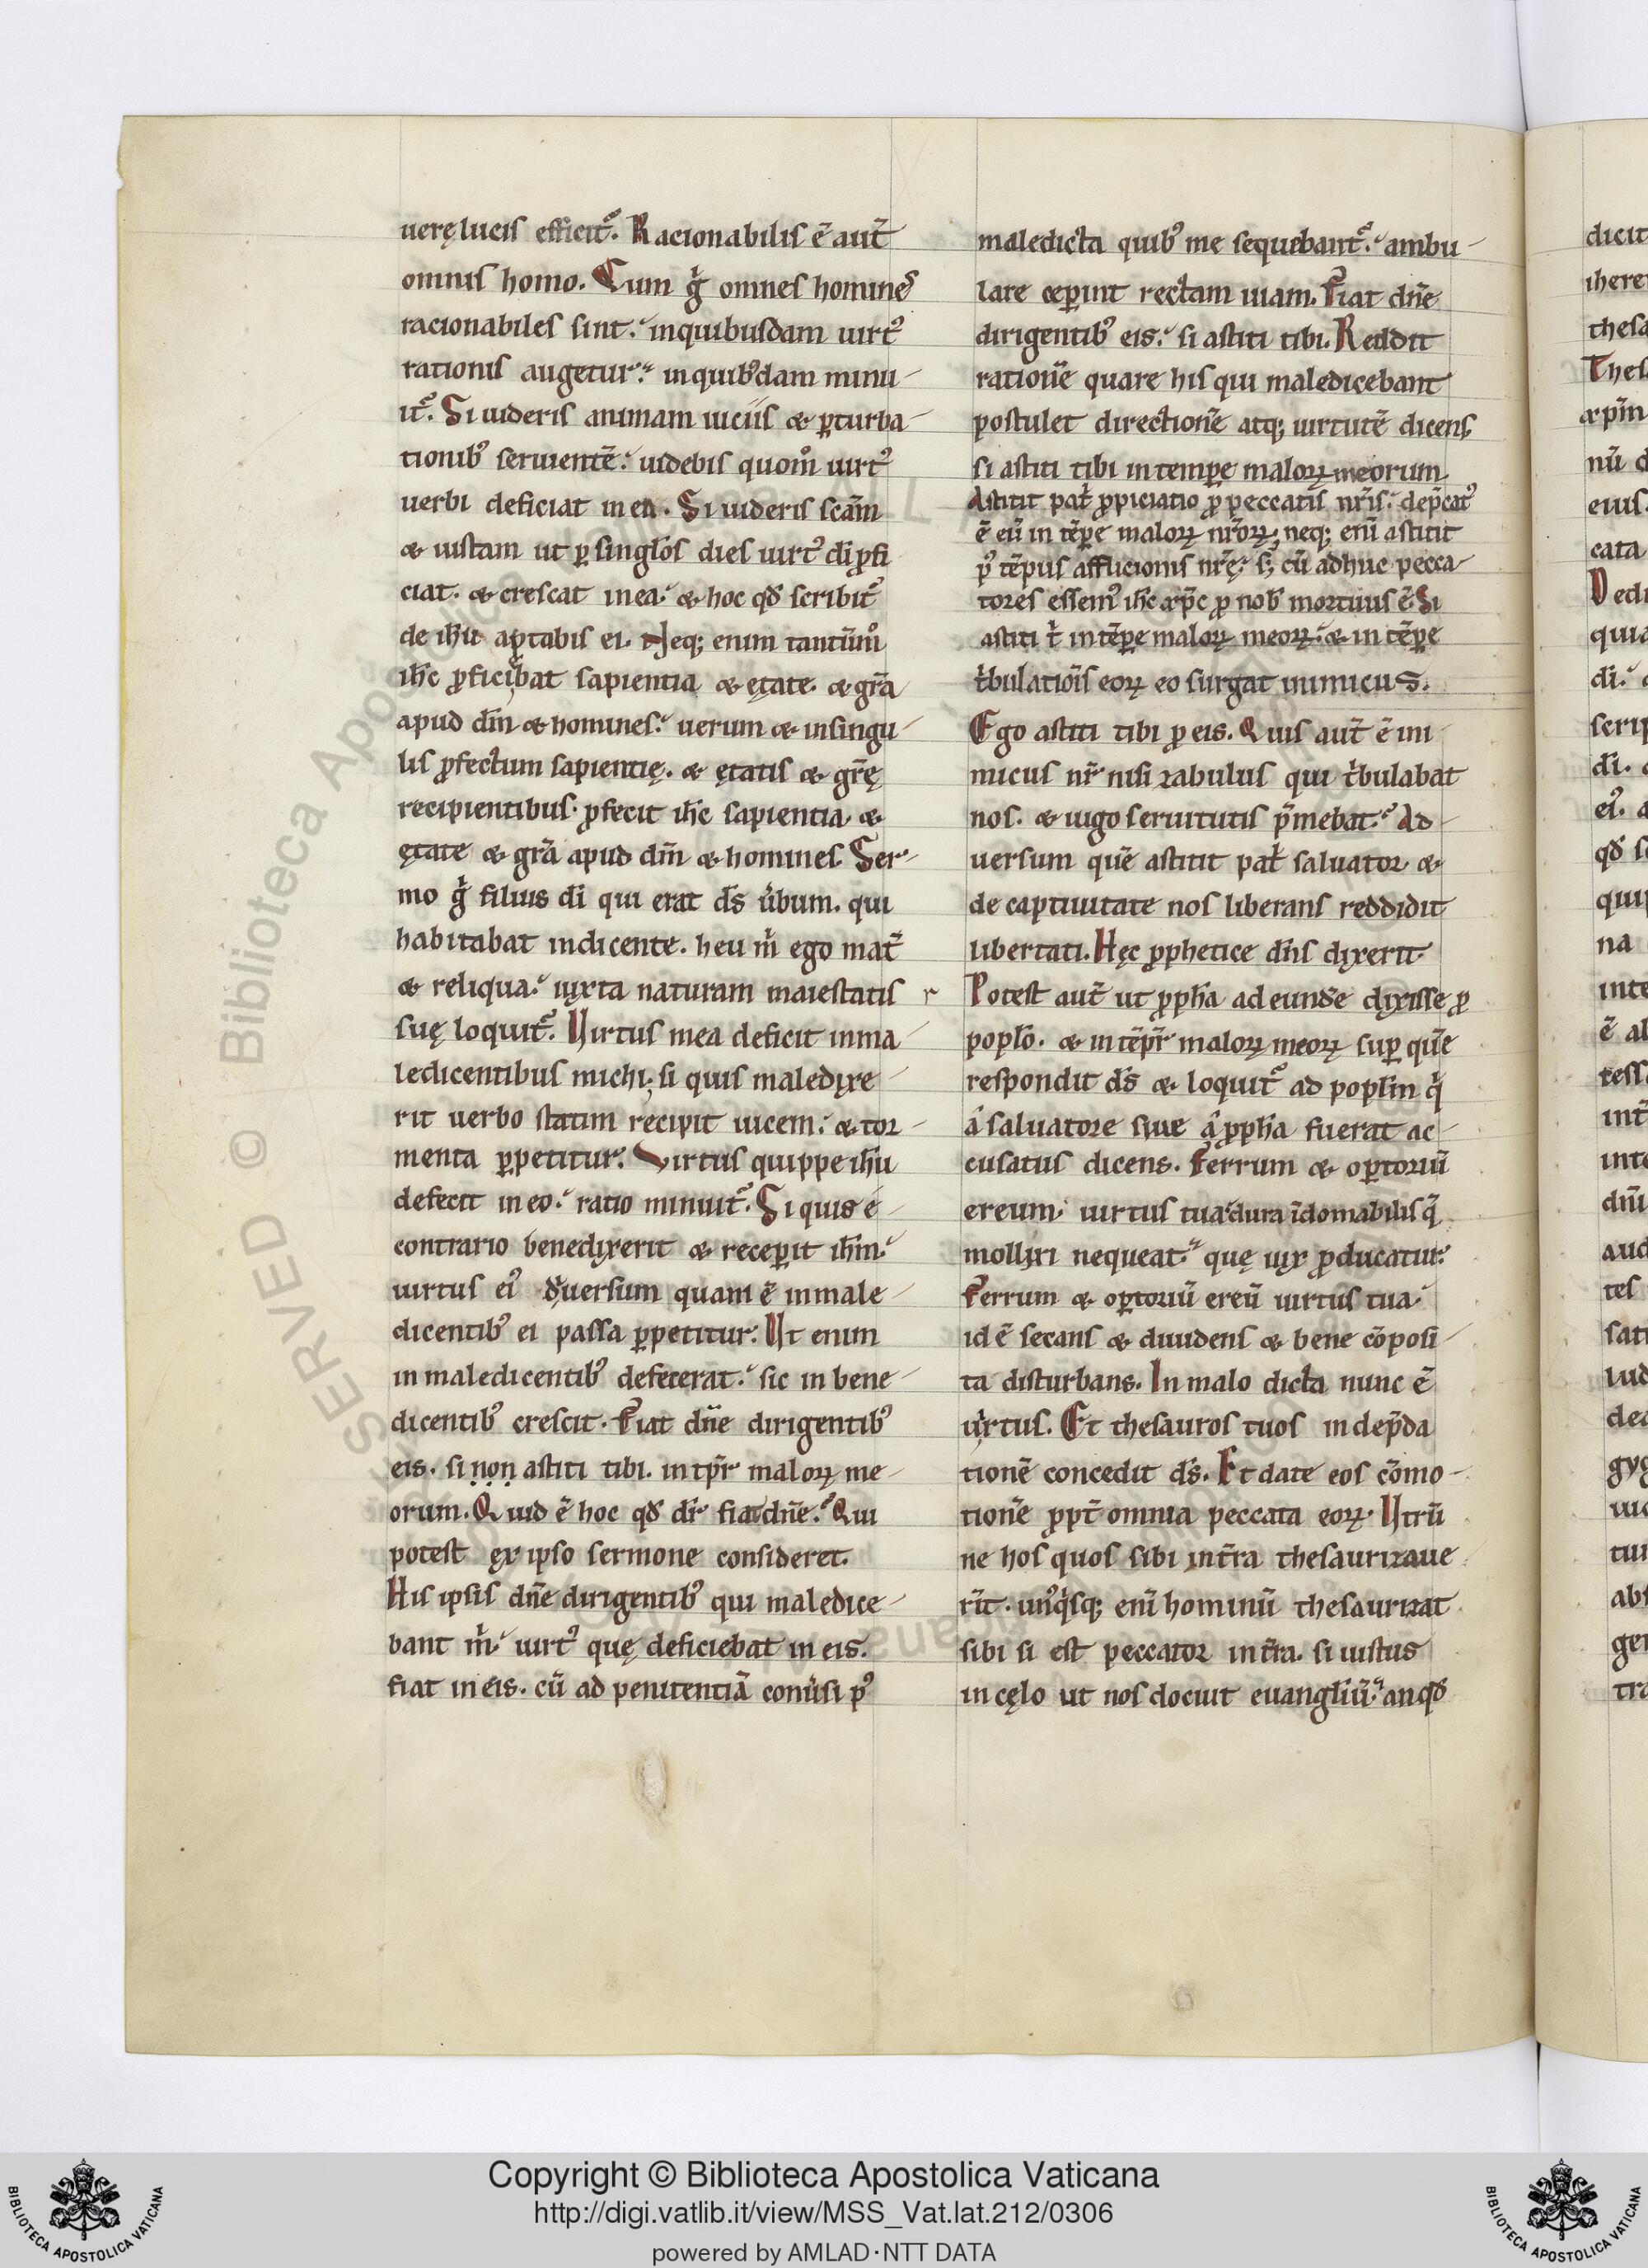 uerę lucis efficit᷑. Racionabilis ē aut̄
omnis homo. Cum g̊ omnes homines
racionabiles sint. inquibusdam uirtꝰ
rationis augetur. inquibꝰdam minu-
it᷑. Si uideris animam uiciis & ꝑturba-
tionibꝰ seruientē. uidebis quom̊ uirtꝰ
uerbi deficiat in ea. Si uideris scām
& iustam ut ꝑ singlos dies uirtꝰ dī ꝓfi
ciat. & crescat inea. & hoc qđ scribit᷑
de ihū aptabis ei. Neq; enim tantūm̊
ihc̄ ꝓficiebat sapientia & ętate & grā
apud dm̄ & homines. uerum & insingu-
lis ꝓfectum sapientię. & ętatis & grē
recipientibus ꝓfecit ihc̄ sapientia &
ętate & grā apud dm̄ & homines. Ser-
mo g̊ filius dī qui erat ds̄ u̅bum. qui
habitabat indicente. heu m̊ ego mat̄
& reliqua. iuxta naturam maiestatis
suę loquit᷑. Uirtus mea deficit inma-
ledicentibus michi; si quis maledixe-
rit uerbo statim recipit uicem. & tor-
menta ꝑpetitur. Virtus quippe ihū
defecit in eo. ratio minuit᷑. Si quis e-
contrario benedixerit & receꝑit ihm̄.
uirtus eiꝰ đuersum quam ē inmale-
dicentibꝰ ei passa ꝑpetitur. Ut enim
in maledicentibꝰ defecerat. sic in bene-
dicentibꝰ crescit. Fiat dn̄e dirigentibꝰ
eis. si non astiti tibi. in tp̄r malorꝝ me-
orum. Quid ē hoc qđ dr̄ fiat dn̄e. Qui
potest ex ipso sermone consideret.
His ipsis dn̄e dirigentibꝰ qui maledice-
bant m̊. uirtꝰ quę deficiebat in eis.
fiat in eis. cū ad penitentiā conu̅si pꝰ
maledicta quibꝰ me sequebant᷑. ambu-
lare ceꝑint rectam uiam. Fiat dn̄e
dirigentibꝰ eis. si astiti tibi. Reddit
rationē quare his qui maledicebant
postulet directionē atq; uirtutē dicens
si astiti tibi in temꝑe malorꝝ meorum
Astitit pat̄ ꝓpiciatio ꝓ peccatis nr̄is. dep̄catꝰ
ē eū in tēꝑe malorꝝ nr̄orꝝ; neq; enī astitit
pꝰ tēpus afflicionis nr̄ę. s; cū adhuc pecca-
tores essemꝰ ihc̄ xp̄c ꝓ nob̄ mortuus ē. Si
astiti t̊ in tēꝑe malorꝝ meorꝝ. & in tēꝑe
t̊bulatiōis eorꝝ eo surgat inimicus.
Ego astiti tibi ꝓ eis. Quis aut̄ ē ini
micus nr̄ nisi zabulus qui t̊bulabat
nos. & iugo seruitutis p̄mebat. Ad
uersum quē astitit pat̄ saluator &
de captiuitate nos liberans reddidit
libertati. Hęc ꝓphetice dn̄s dixerit.
Potest aut̄ ut ꝓph̄a ad eundē dixisse ꝓ
poplo. & in tēpr̄ malorꝝ meorꝝ suꝑ quē
respondit ds̄ & loquit᷑ ad poplm̄ q̊
a saluatore siue a ꝓph̄a fuerat ac-
cusatus dicens. Ferrum & oꝑtoriū
ereum uirtus tua dura īdomabilis q̄
molliri nequeat. quę uix ꝓducatur.
Ferrum & oꝑtoriū ereū uirtus tua.
id ē secans & diuidens & bene cōposi-
ta disturbans. In malo dicta nunc ē
uirtus. Et thesauros tuos in dep̄da
tionē concedit ds̄. Et date eos cōmo-
tionē ꝓpt̄ omnia peccata eorꝝ. Utrū
ne hos quos sibi int̄ra thesaurizaue
rīt. unꝰq̊sq; enī hominū thesaurizat
sibi si est peccator in t̄ra. si iustus
in cęlo ut nos docuit euangliū. an qđ
Copyright © Biblioteca Apostolica Vaticana
http://digi.vatlib.it/view/MSS_Vat.lat.212/0306
powered by AMLAD·NTT DATA
BIBLIOTECA APOSTOLICA VATICANA
BIBLIOTECA APOSTOLICA VATICANA